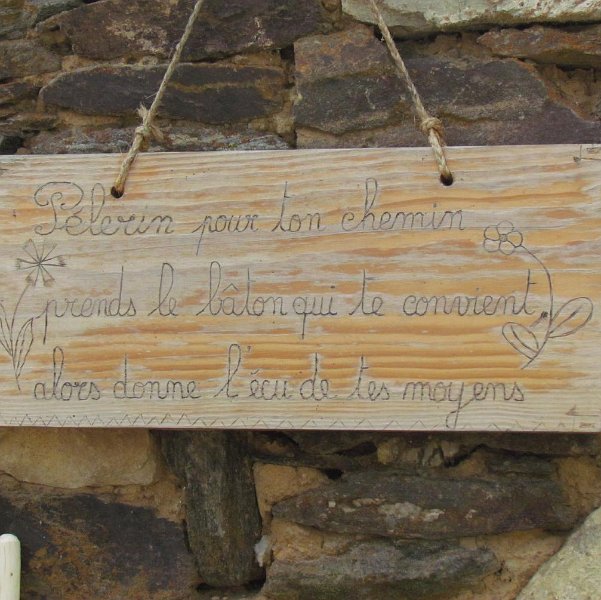 Pélerin pour ton chemin
prends le bâton qui te convient
alors donne l'écu de tes moyens